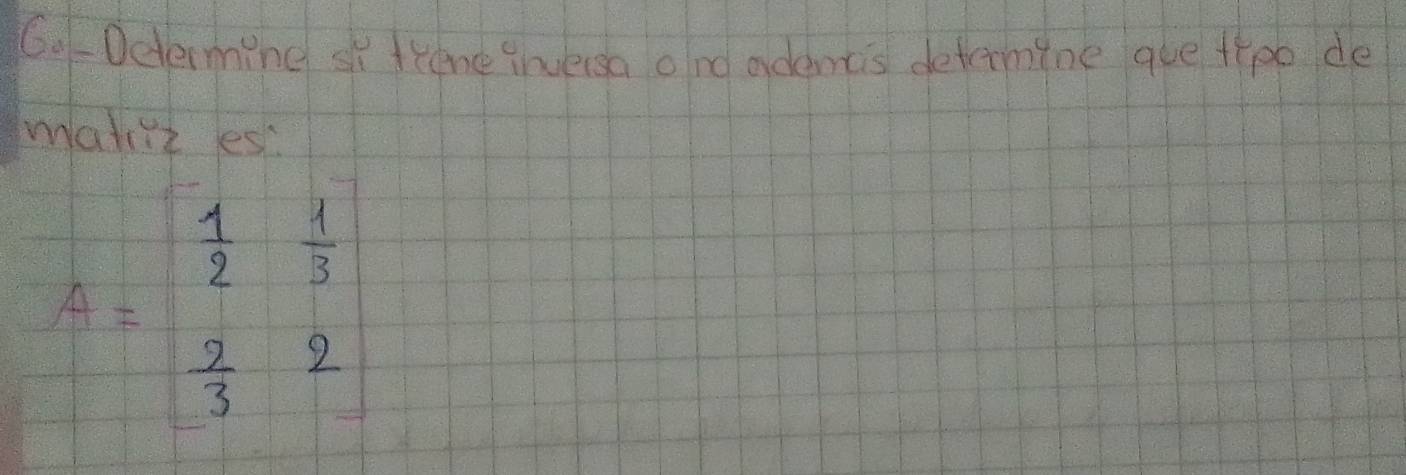 6.- Determine si tiene inversa o no además determine que tipo de
matriz es:
A = [ 1/2 1/3
2/3 2 ]